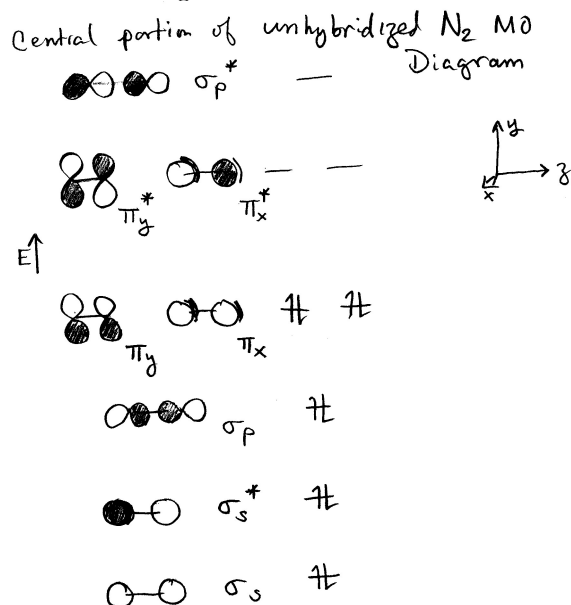 Central portion of unhybridized N₂ MO
Diagram
σp*
y
z
x
πy* πx*
E↑
πy πx
σp
σs*
σs